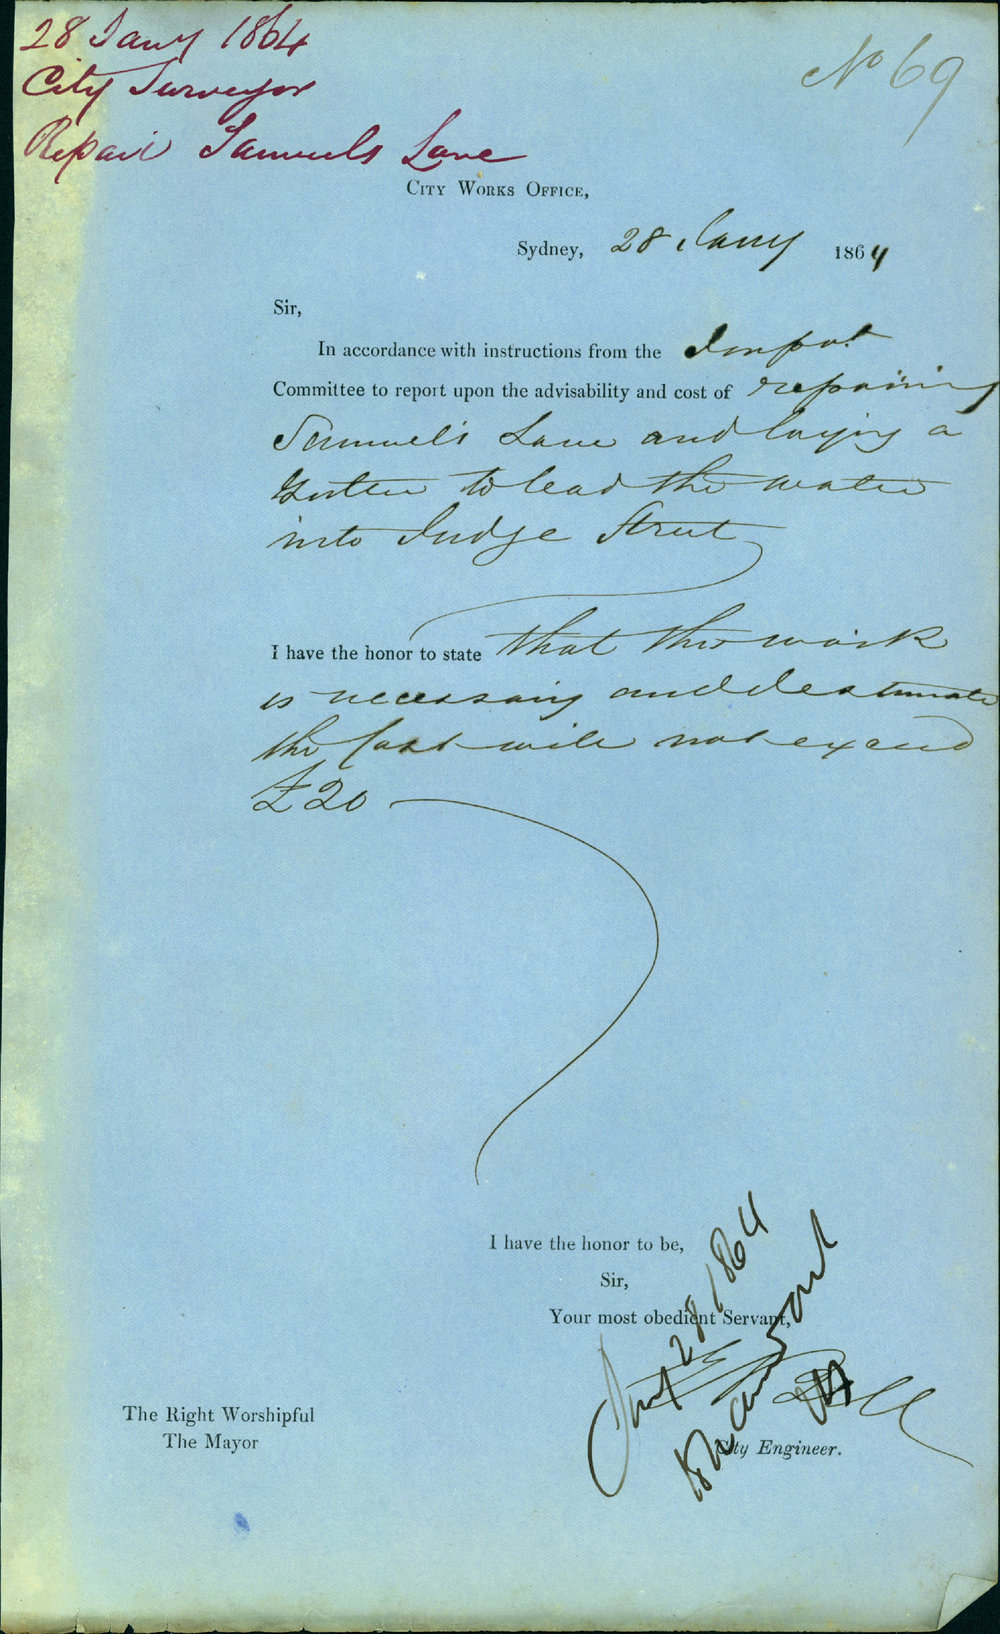 28 Jany 1864
City Surveyor
Repair Samuels Lane
No 69
CITY WORKS OFFICE,
Sydney, 28 Jany 1864
Sir,
In accordance with instructions from the Impt
Committee to report upon the advisability and cost of repairing
Samuel's Lane and laying a
Gutter to lead the water
into Judge Street
I have the honor to state that this work
is necessary and I estimate
the Cost will not exceed
£20
I have the honor to be,
Sir,
Your most obedient Servant,
Bell
City Engineer.
28 1864
The Right Worshipful
The Mayor